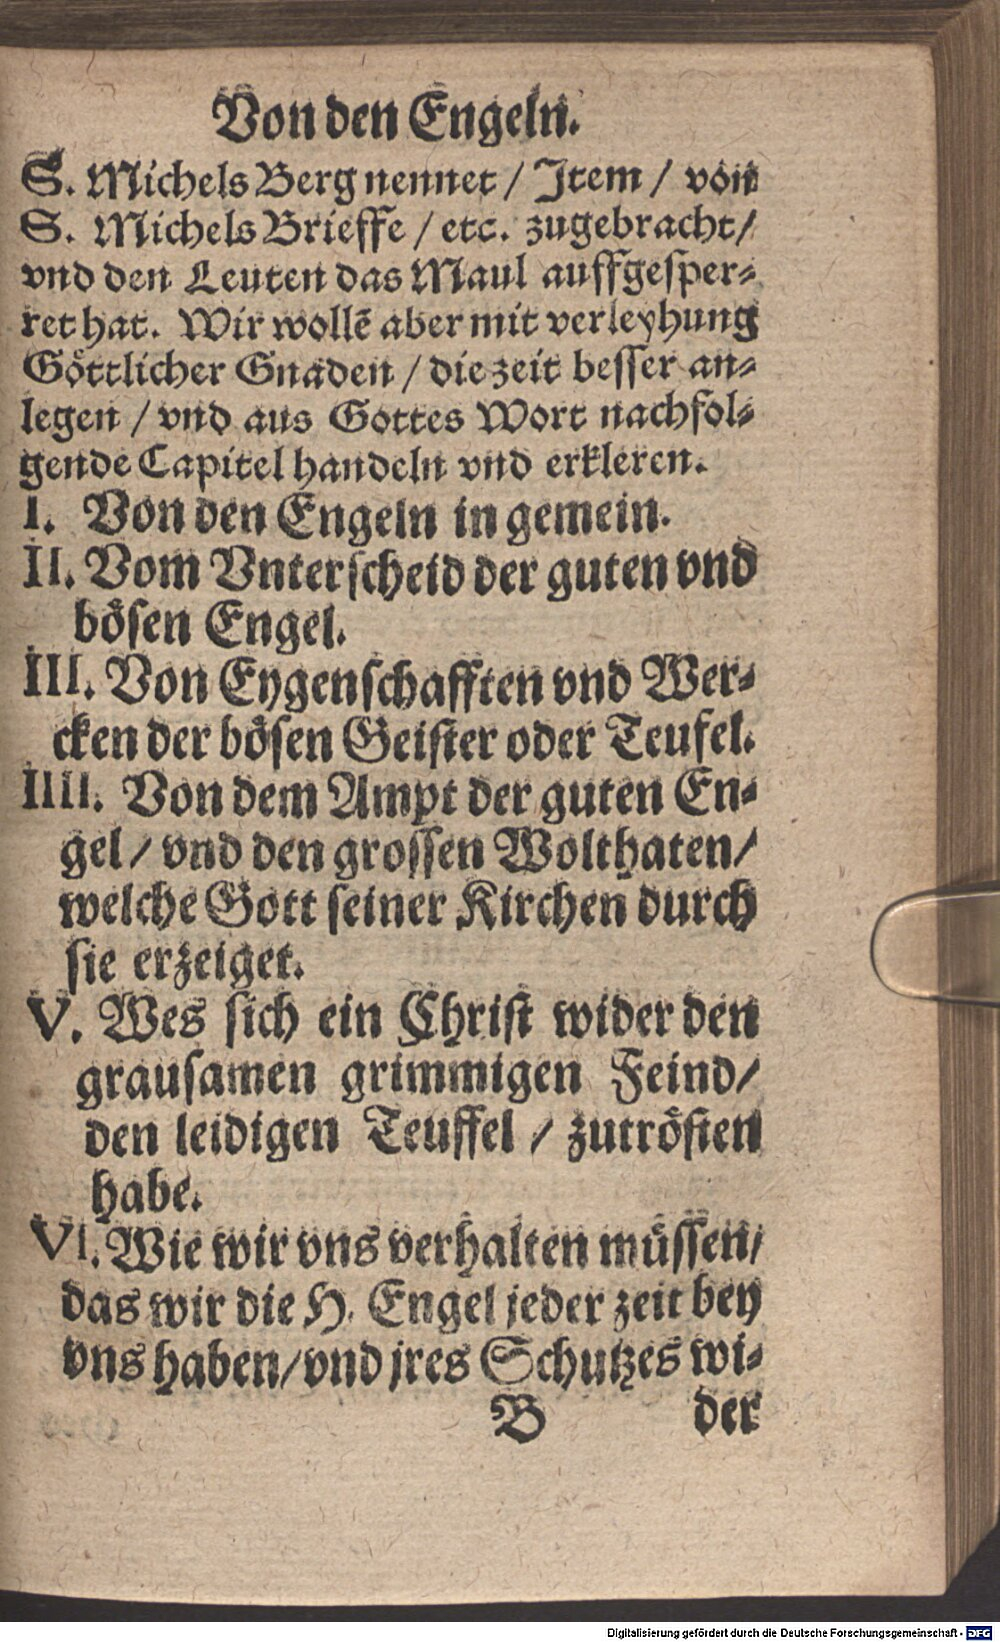 Von den Engeln.
S. Michels Berg nennet / Item / von
S. Michels Brieffe / etc. zugebracht /
vnd den Leuten das Maul auffgesper⸗
ret hat. Wir wollẽ aber mit verleyhung
Göttlicher Gnaden / die zeit besser an⸗
legen / vnd aus Gottes Wort nachfol⸗
gende Capitel handeln vnd erkleren.
I. Von den Engeln in gemein.
II. Vom Vnterscheid der guten vnd
bösen Engel.
III. Von Eygenschafften vnd Wer⸗
cken der bösen Geister oder Teufel.
IIII. Von dem Ampt der guten En⸗
gel / vnd den grossen Wolthaten /
welche Gott seiner Kirchen durch
sie erzeiget.
V. Wes sich ein Christ wider den
grausamen grimmigen Feind /
den leidigen Teuffel / zutrösten
habe.
VI. Wie wir vns verhalten müssen /
das wir die H. Engel jeder zeit bey
vns haben / vnd jres Schutzes wi⸗
B der
Digitalisierung gefördert durch die Deutsche Forschungsgemeinschaft - DFG